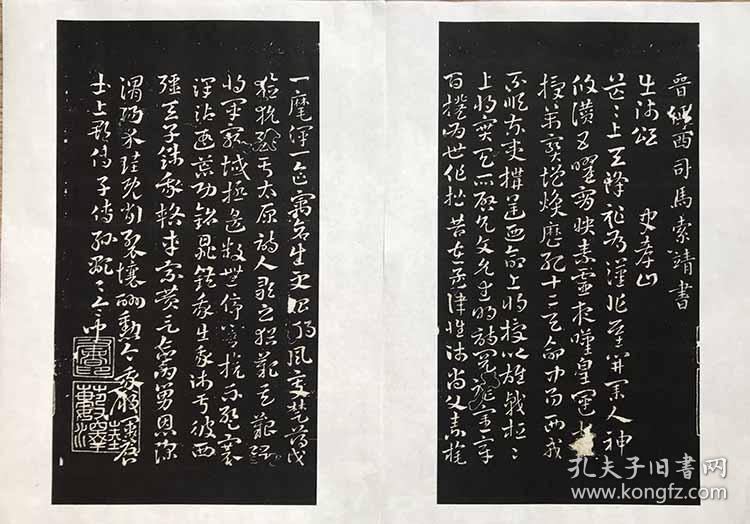 晉征西司馬索靖書
出師頌 史孝山
茫々上天降祚為漢兆基開業人神
攸讚五曜霄映素靈夜嘆皇運
授萬寶增煥歷紀十二天命中易西戎
不順東夷構逆乃命上將授以雄戟桓々
上將實天所啓允文允武明詩閱禮憲章
百揆為世作楷昔在孟津惟師尚父素旄
一麾渾一區宇蒼生更始朔風變楚薄伐
獫狁至于太原詩人歌之猶歎其艱況我
將軍窮域極邊鼓無停響旗不蹔褰
澤沾遐荒功銘鼎鉉我出我師于彼西
疆天子餞我路車乘黃言念伯舅恩深
渭陽介珪既削裂壤酬勳今我將軍啓
土上郡傳子傳孫顯々令問
孔夫子旧书网
www.kongfz.com